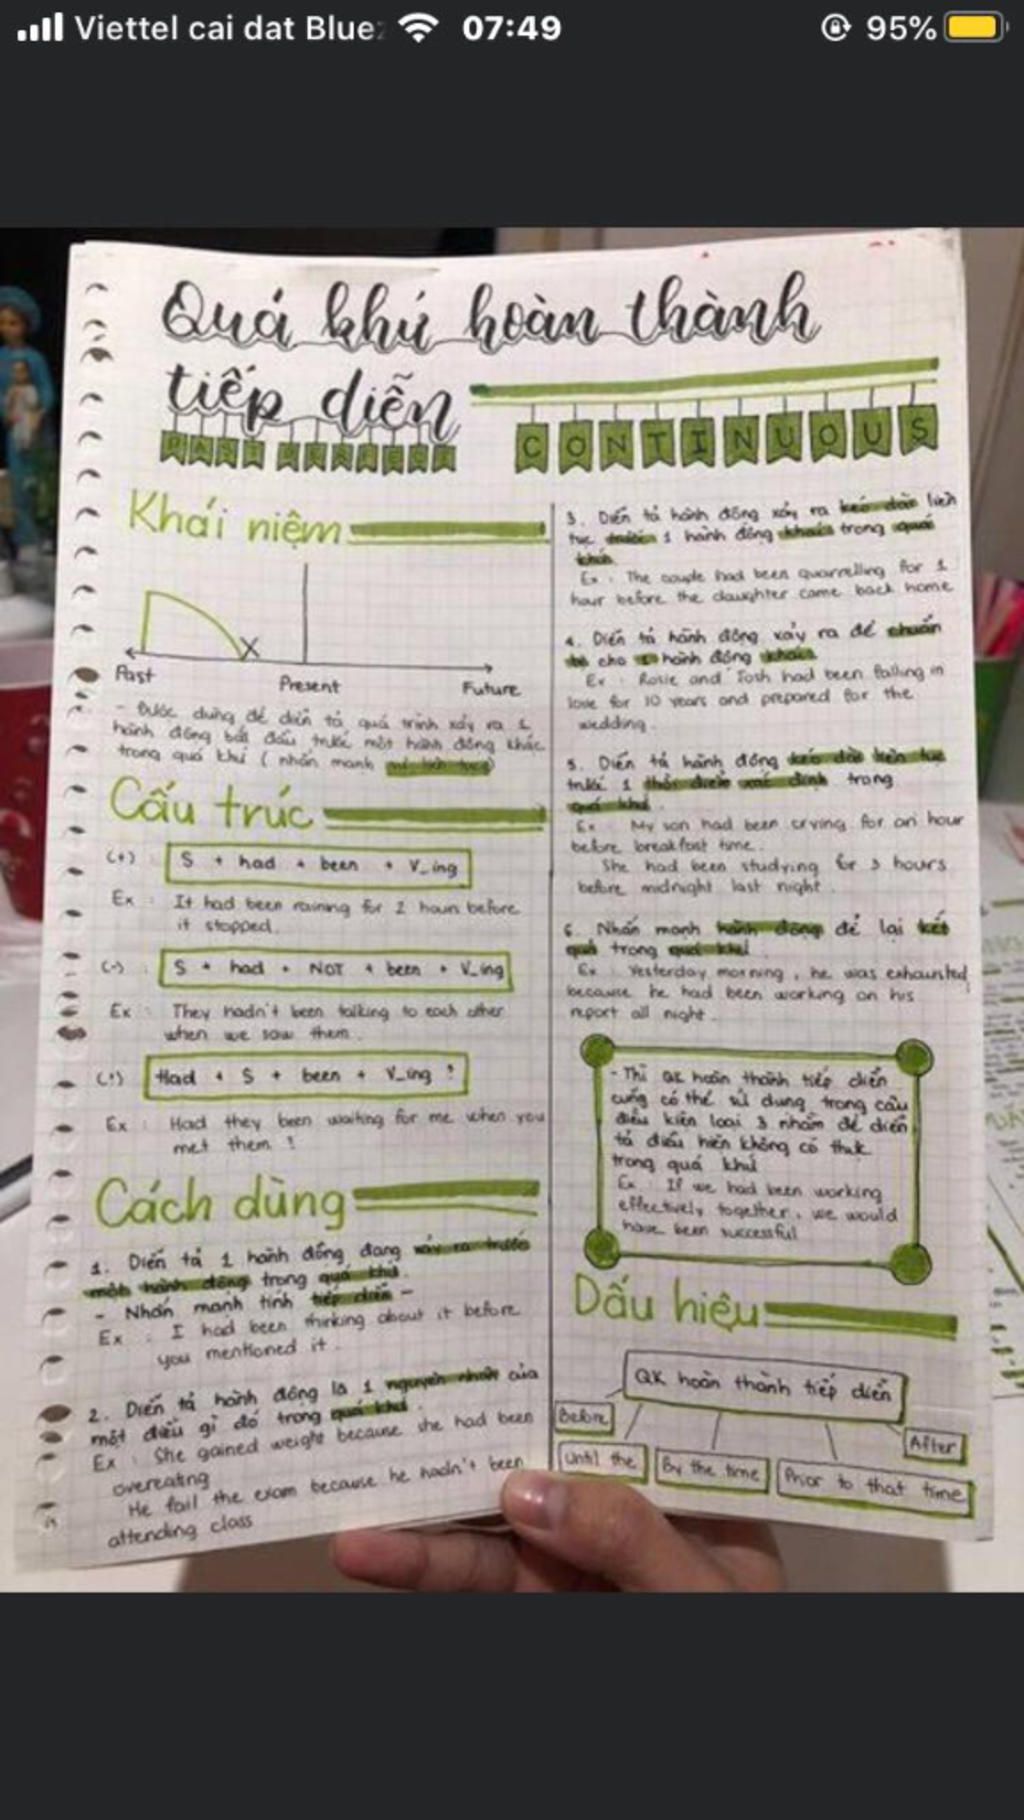 Viettel cai dat Blue
07:49
95%
Quá khứ hoàn thành
tiếp diễn
PAST PERFECT CONTINUOUS
Khái niệm
Past
Present
Future
- Được dùng để diễn tả quá trình xảy ra 1
hành động bắt đầu trước một hành động khác
trong quá khứ ( nhấn mạnh
Cấu trúc
(+) S + had + been + V_ing
Ex : It had been raining for 2 hours before
it stopped.
(-) : S + had + NOT + been + V_ing
Ex : They hadn't been talking to each other
when we saw them.
(?) Had + S + been + V_ing ?
Ex : Had they been waiting for me when you
met them ?
Cách dùng
1. Diễn tả 1 hành động đang xảy ra trước
một hành động trong quá khứ.
- Nhấn mạnh tính tiếp diễn -
Ex : I had been thinking about it before
you mentioned it.
2. Diễn tả hành động là 1 nguyên nhân của
một điều gì đó trong quá khứ.
Ex : She gained weight because she had been
overeating
He fail the exam because he hadn't been
attending class
3. Diễn tả hành động xảy ra kéo dài liên
tục trước 1 hành động khác trong quá
khứ.
Ex : The couple had been quarrelling for 1
hour before the daughter came back home
4. Diễn tả hành động xảy ra để chuẩn
bị cho 1 hành động khác.
Ex : Rosie and Josh had been falling in
love for 10 years and prepared for the
wedding.
5. Diễn tả hành động kéo dài liên tục
trước 1 thời điểm xác định trong
quá khứ.
Ex : My son had been crying for an hour
before breakfast time.
She had been studying for 3 hours
before midnight last night.
6. Nhấn mạnh hành động để lại kết
quả trong quá khứ.
Ex : Yesterday morning, he was exhausted
because he had been working on his
report all night.
- Thì QK hoàn thành tiếp diễn
cũng có thể sử dụng trong câu
điều kiện loại 3 nhằm để diễn
tả điều kiện không có thực
trong quá khứ
Ex : If we had been working
effectively together, we would
have been successful
Dấu hiệu
QK hoàn thành tiếp diễn
Before
After
Until the
By the time
Prior to that time